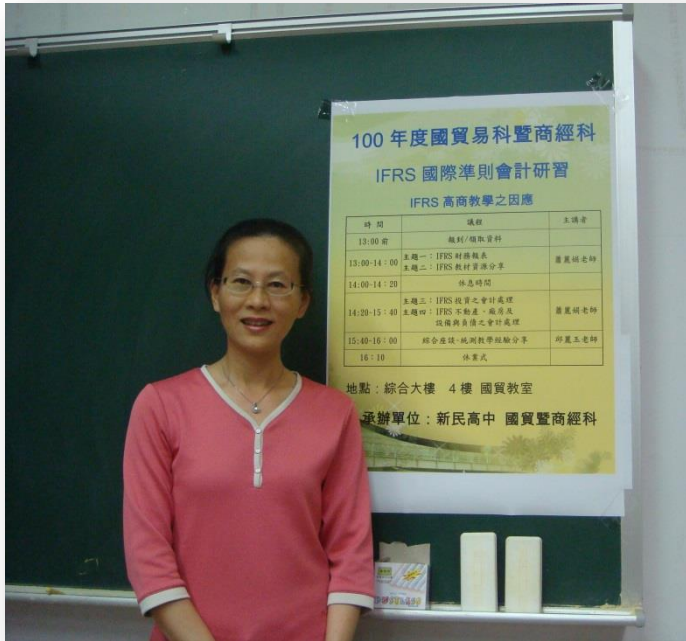 100 年度國貿易科暨商經科
IFRS 國際準則會計研習
IFRS 高商教學之因應
時 間 議程 主講者
13:00 前 報到/領取資料
13:00-14:00 主題一:IFRS 財務報表
主題二:IFRS 教材資源分享 蕭麗娟老師
14:00-14:20 休息時間
14:20-15:40 主題三:IFRS 投資之會計處理
主題四:IFRS 不動產、廠房及
設備與負債之會計處理 蕭麗娟老師
15:40-16:00 綜合座談-統測教學經驗分享 邱麗玉老師
16:10 休業式
地點:綜合大樓 4 樓 國貿教室
承辦單位:新民高中 國貿暨商經科